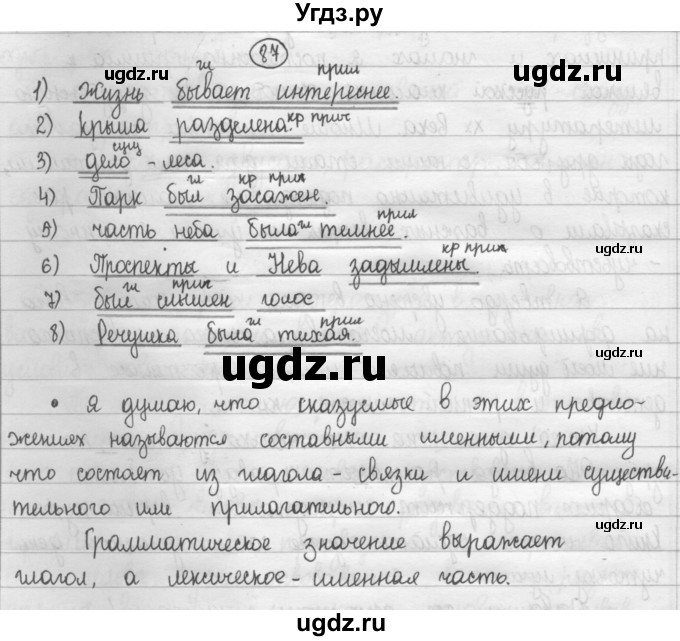 Угдз.ру
87
гл прил
1) Жизнь бывает интереснее.
2) Крыша разделена. кр прич
сущ
3) дело - леса.
гл кр прич
4) Парк был засажен.
гл прил
5) часть неба была темнее.
кр прич
6) Проспекты и Нева задымлены
гл прич
7) был слышен голос
гл прил
8) Речушка была тихая.
ugdz.ru
• Я думаю, что сказуемые в этих предло-
жениях называются составными именными, потому
что состоят из глагола-связки и имени существи-
тельного или прилагательного.
Грамматическое значение выражает
глагол, а лексическое - именная часть.
ugdz.ru
ugdz.ru
ugdz.ru
ugdz.ru
ugdz.ru
ugdz.ru
ugdz.ru
ugdz.ru
Угдз.ру